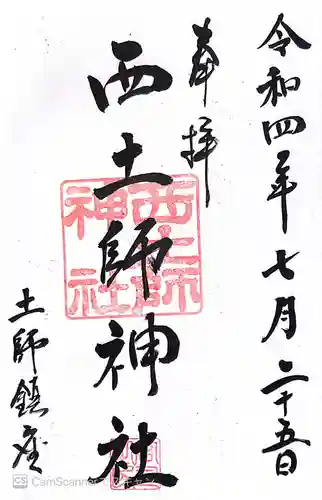 令和四年七月二十五日
奉拝
西土師神社
西土師
神社
土師鎮座
CS CamScanner でスキャン